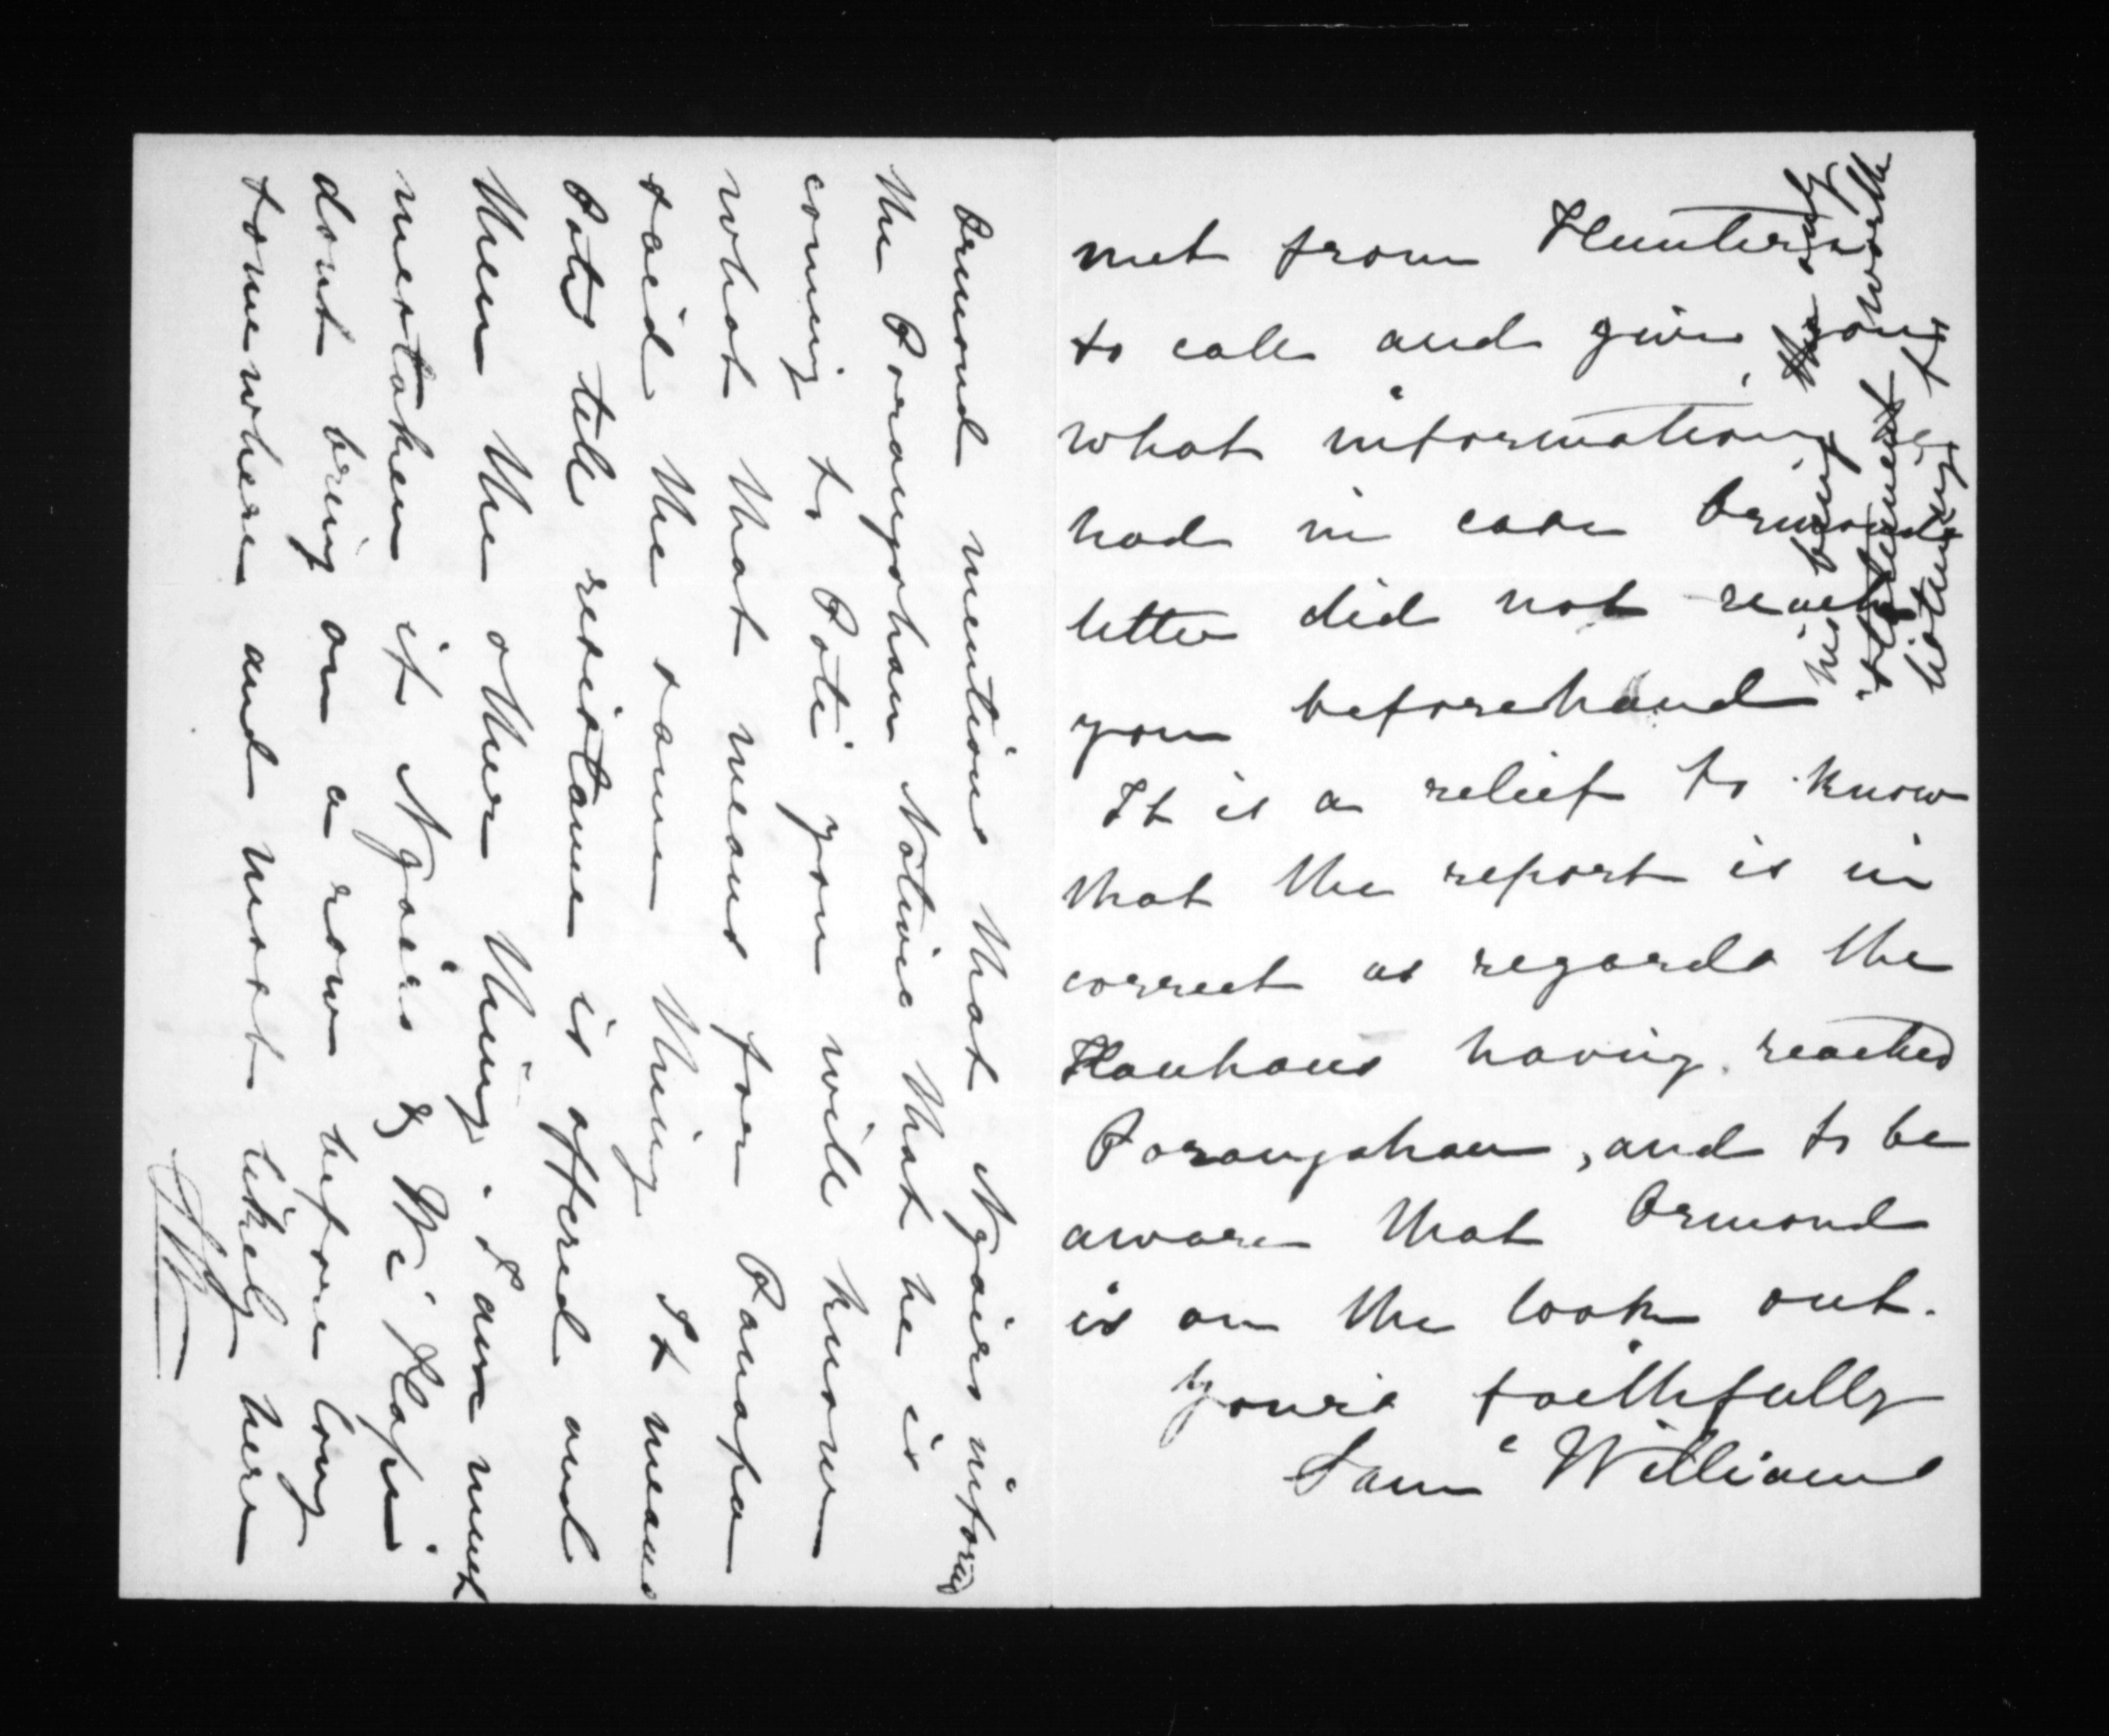 met from Hunters
to call and give you
what information he
had in case Ormonds
letter did not reach
you beforehand
It is a relief to know
that the report is in
correct as regards the
Hauhaus having reached
Porangahau, and to be
aware that Ormond
is on the look out.
Yours faithfully
Saml Williams
his being the only
statement worth
listening to
Ormond mentions that Ngairo informed
the Porangahau Natives that he is
coming to Poti you will know
what that means for Panapa
said the same thing It means
Poti till resistance is offered and
then the other thing. I am much
mistaken if Ngairo & Wi Hapi
dont bring on a row before long
somewhere and most likely here
SW